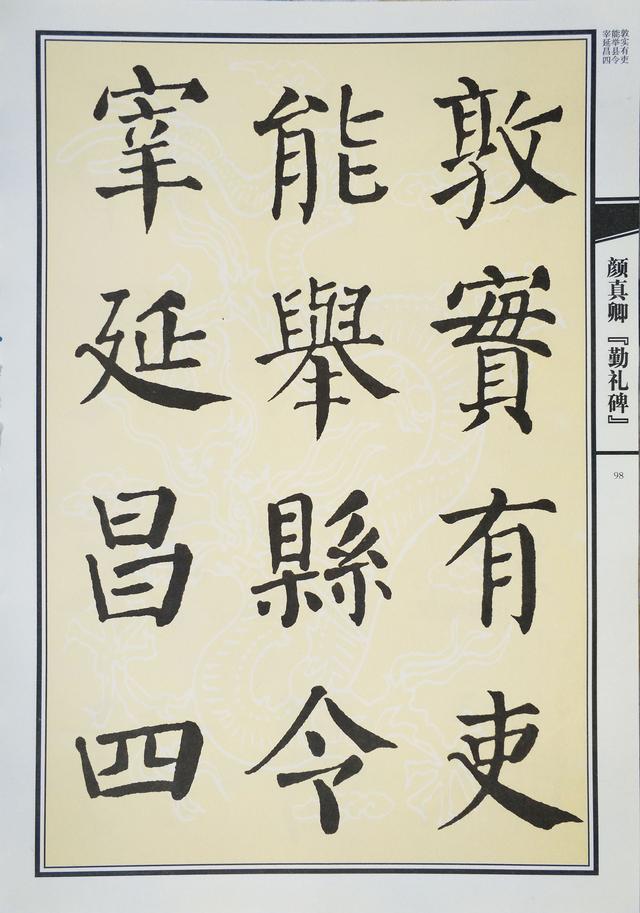 敦實有吏
能舉縣令
宰延昌四
敦实有吏
能举县令
宰延昌四
颜真卿『勤礼碑』
98